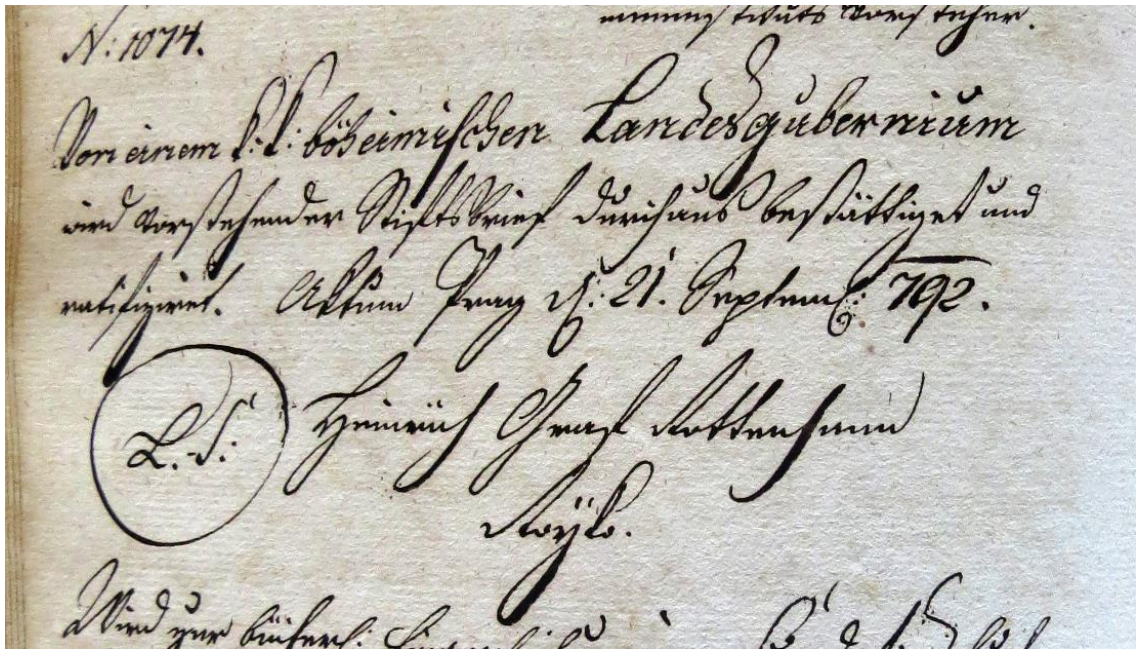 Vorsteher.
N: 1074.
Von einem k: k: böheimischen Landesgubernium
wird vorstehender Stiftsbrief durchaus bestättiget und
ratifiziret. Aktum Prag d: 21t. Septemb: 792.
L. S: Heinrich Graf Rottenhann
Royko.
Wird zur bücherl: